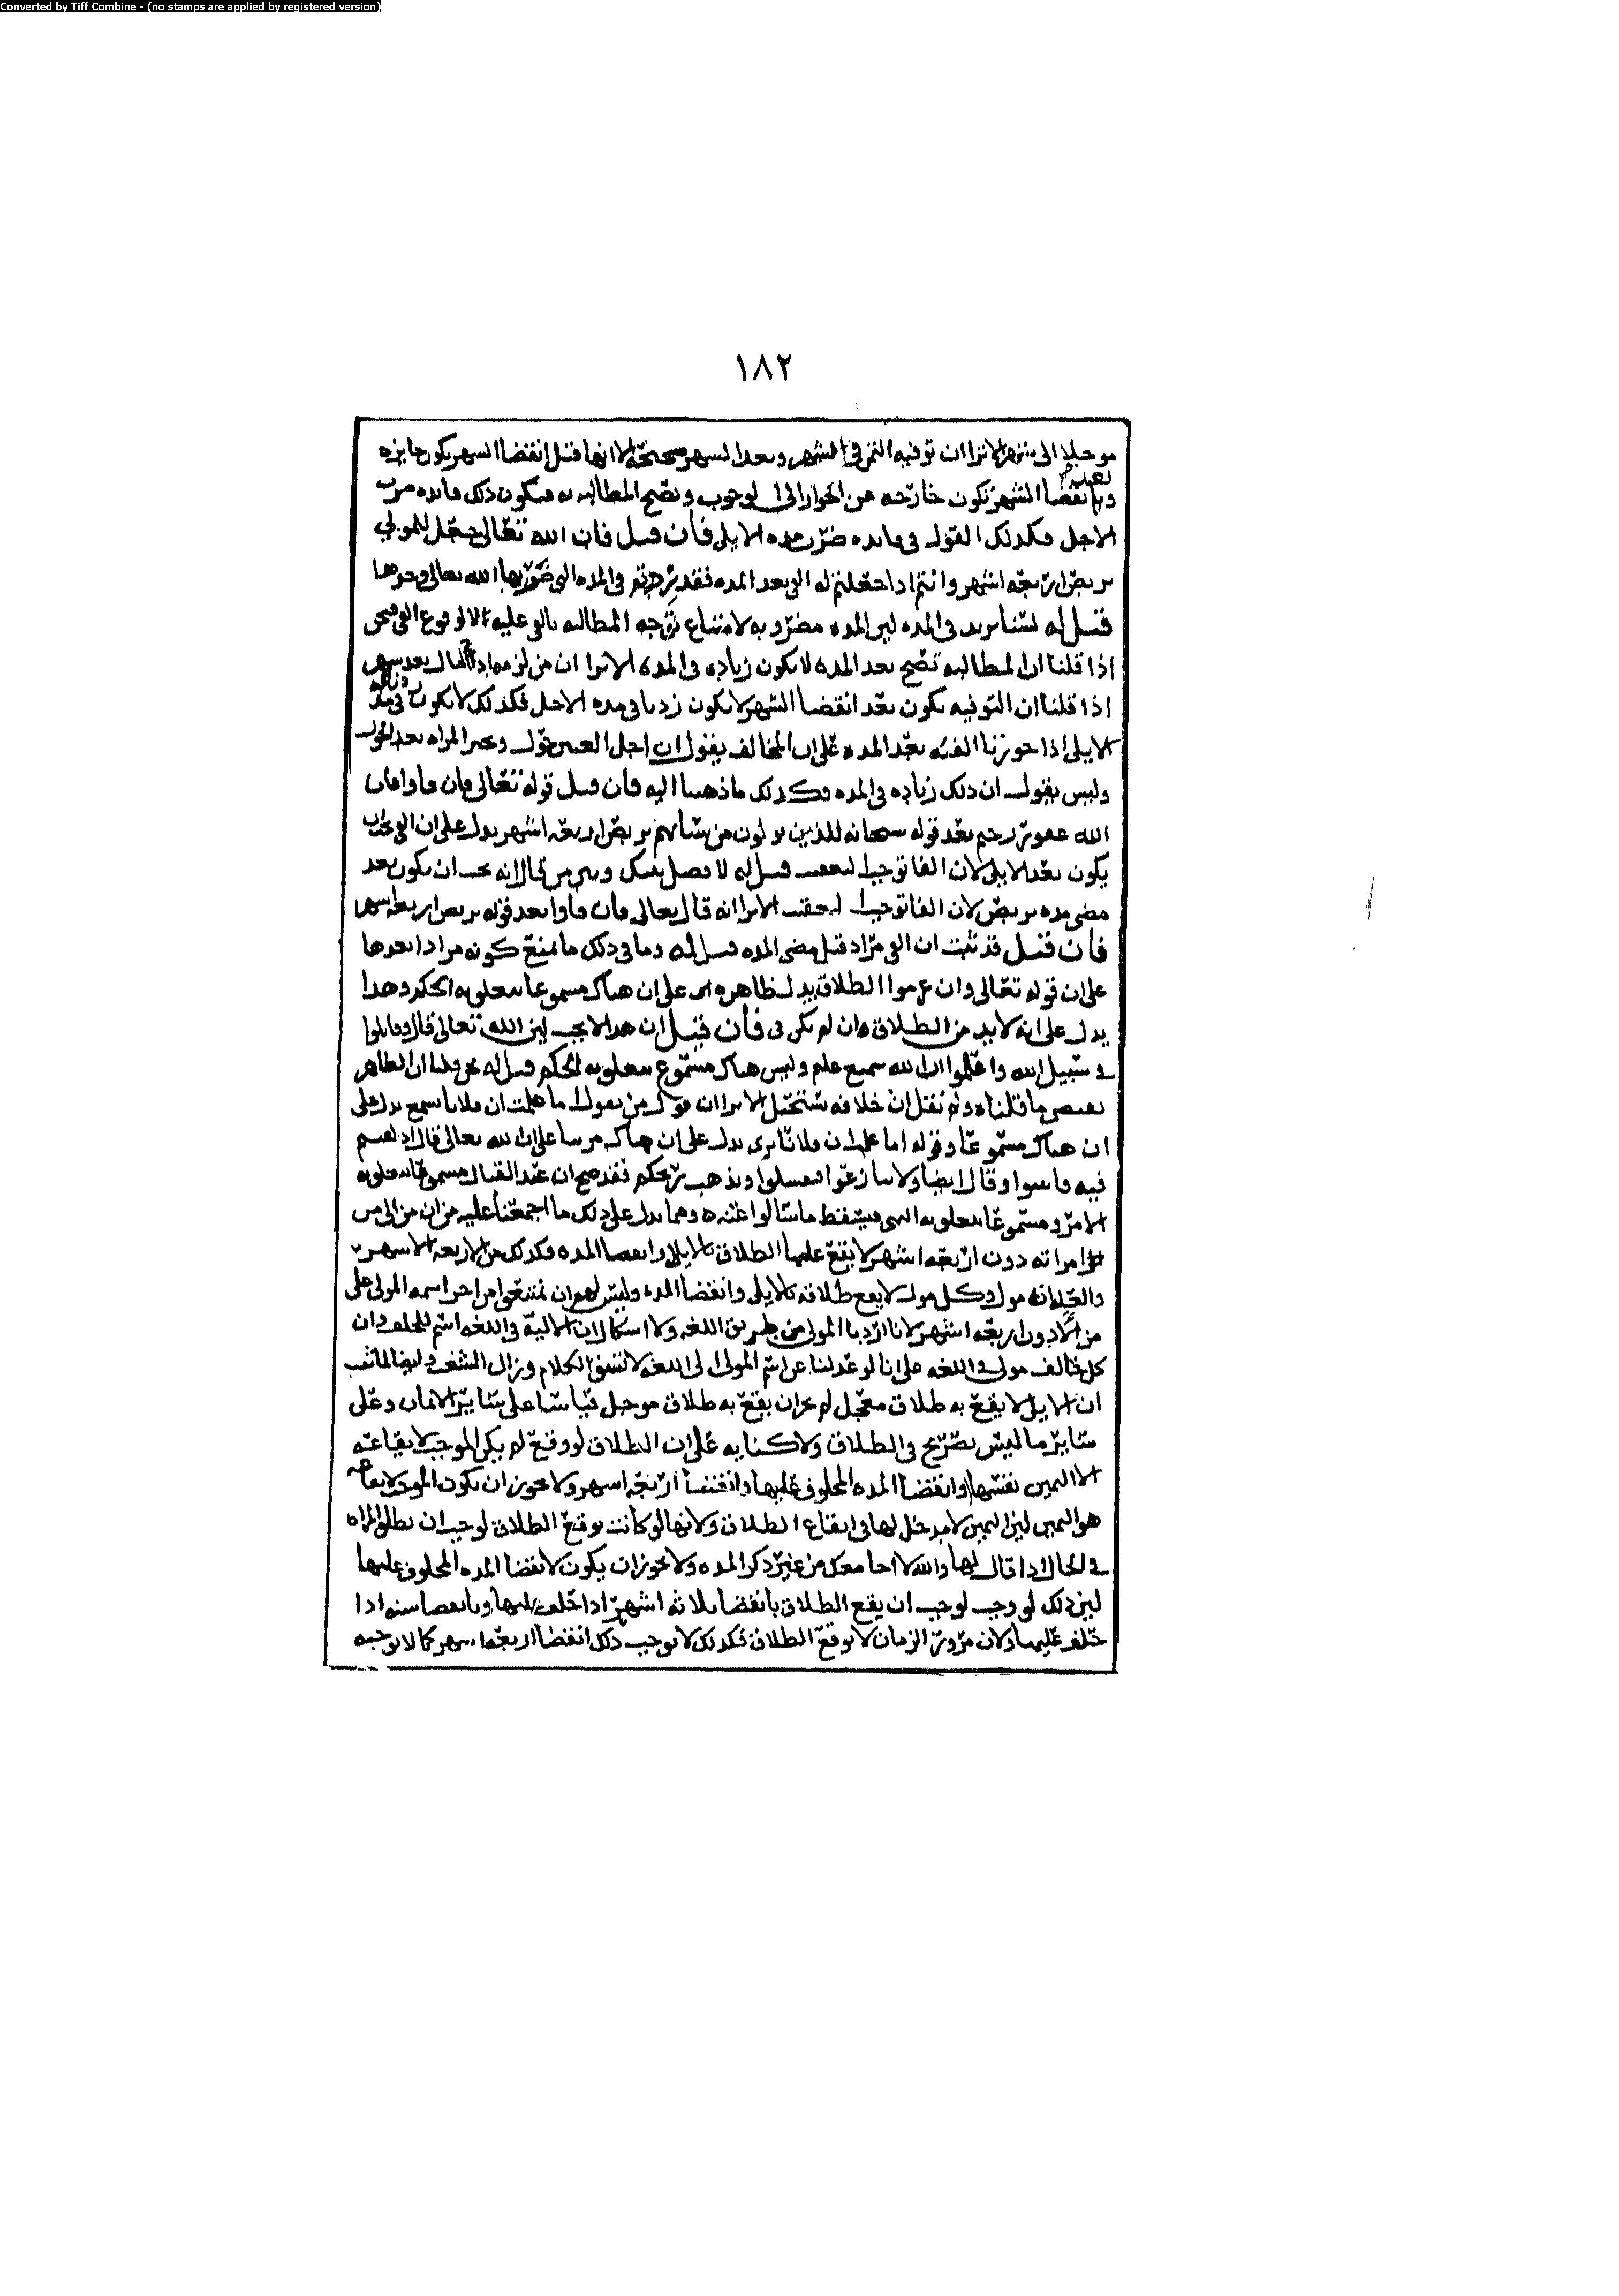 Converted by Tiff Combine - (no stamps are applied by registered version)
١٨٢
موجلا الى شهر الا ترا ان توفيه الثمن في الشهر وبعد الشهر صحيحة الا انها قبل انقضا الشهر يكون جايزه
وبانقضا الشهر تكون خارجه من الجواز الى الوجوب وتصح المطالبه به فيكون ذلك فايده ضرب
الاجل فكذلك القول في فايده ضرب مده الايلى فان قيل فان الله تعالى جعل للمولي
تربص اربعه اشهر وانتم اذا جعلتم له الفي بعد المده فقد زدتم في المده التي ضربها الله تعالى وحدها
قيل له لسنا نزيد في المده لين المده مضروبه لامتناع توجه المطالبه بالفي عليه لا لوقوع الفي فنحن
اذا قلنا ان المطالبه تصح بعد المده لا يكون زياده في المده الا ترا ان من لزمه ادا المال بعد شهر
اذا قلنا ان التوفيه تكون بعد انقضا الشهر لا يكون زدنا في مده الاجل فكذلك لا يكون زدنا في مده
الايلى اذا جوزنا الفئه بعد المده على ان المخالف يقول ان اجل العنين حول وتخير المراه بعد الحول
وليس يقول ان ذلك زياده في المده وكذلك ما ذهبنا اليه فان قيل قوله تعالى فان فاوا فان
الله غفور رحيم بعد قوله سبحانه للذين يولون من نسائهم تربص اربعه اشهر يدل على ان الفي يجب ان
يكون بعد الايلى لان الفا توجب التعقيب قيل له لا فصل بينك وبين من قال انه يجب ان يكون بعد
مضي مده تربص لان الفا توجب التعقيب الا ترا انه قال تعالى فان فاوا بعد قوله تربص اربعه اشهر
فان قيل قد ثبت ان الفي مراد قبل مضي المده قيل له وما في ذلك ما يمنع كونه مرادا بعدها
على ان قوله تعالى وان عزموا الطلاق يدل ظاهره على ان هناك مسموعا يتعلق به الحكم وهذا
يدل على انه لا بد من الطلاق وان لم يكن في فان قيل ان هذا لا يجب لين الله تعالى قال وقاتلوا
في سبيل الله واعلموا ان الله سميع عليم وليس هناك مسموع يتعلق به الحكم قيل له نحن قلنا ان الظاهر
يقتضي ما قلناه ولم نقل ان خلافه يستحيل الا ترا ان قول من يقول اما علمت ان فلانا يسمع يدل على
ان هناك مسموعا وقوله اما علمت ان فلانا يرى يدل على ان هناك مرييا على ان الله تعالى قال اذا لقيتم
فيه فاثبتوا وقال ايضا ولا تنازعوا فتفشلوا وتذهب ريحكم فقد صح ان عند القتال مسموعا يتعلق به
الامر ومسموعا يتعلق به النهي فيسقط ما سالوا عنه ومما يدل على ذلك ما اجمعنا عليه من ان من الى من
امراته دون اربعه اشهر لا يقع عليها الطلاق بالايلى وانقضا المده فكذلك من الاربعه الاشهر
والعله انه مول وكل مول لا يقع طلاقه بالايلى وانقضا المده وليس لهم ان يمنعوا من اجرا اسم المولى على
من الا دون اربعه اشهر لانا اردنا المولي من طريق اللغه ولا اشكال ان الاليه في اللغه اسم للحلف وان
كل حالف مول في اللغه على انا لو عدلنا عن اسم المولى الى اللغه لاتسق الكلام وزال الشغب وايضا لما ثبت
ان الايلى لا يقع به طلاق معجل لم يجز ان يقع به طلاق موجل قياسا على سائر الايمان وعلى
سائر ما ليس بصريح في الطلاق ولا كنايه على ان الطلاق لو وقع لم يكن الموجب لايقاعه
الا اليمين نفسها او انقضا المده المحلوف عليها او انقضا اربعه اشهر ولا يجوز ان يكون الموجب لايقاعه
هو اليمين لين اليمين لا مدخل لها في ايقاع الطلاق ولانها لو كانت توقع الطلاق لوجب ان تطلق المراه
في الحال اذا قال لها والله لا اجامعك من غير ذكر المده ولا يجوز ان يكون لانقضا المده المحلوف عليها
لين ذلك لو وجب لوجب ان يقع الطلاق بانقضا ثلاثه اشهر اذا حلف عليها وبانقضا سنه اذا
حلف عليها ولان مرور الزمان لا توقع الطلاق فكذلك لا يوجب ذلك انقضا اربعه اشهر كما لا توجبه